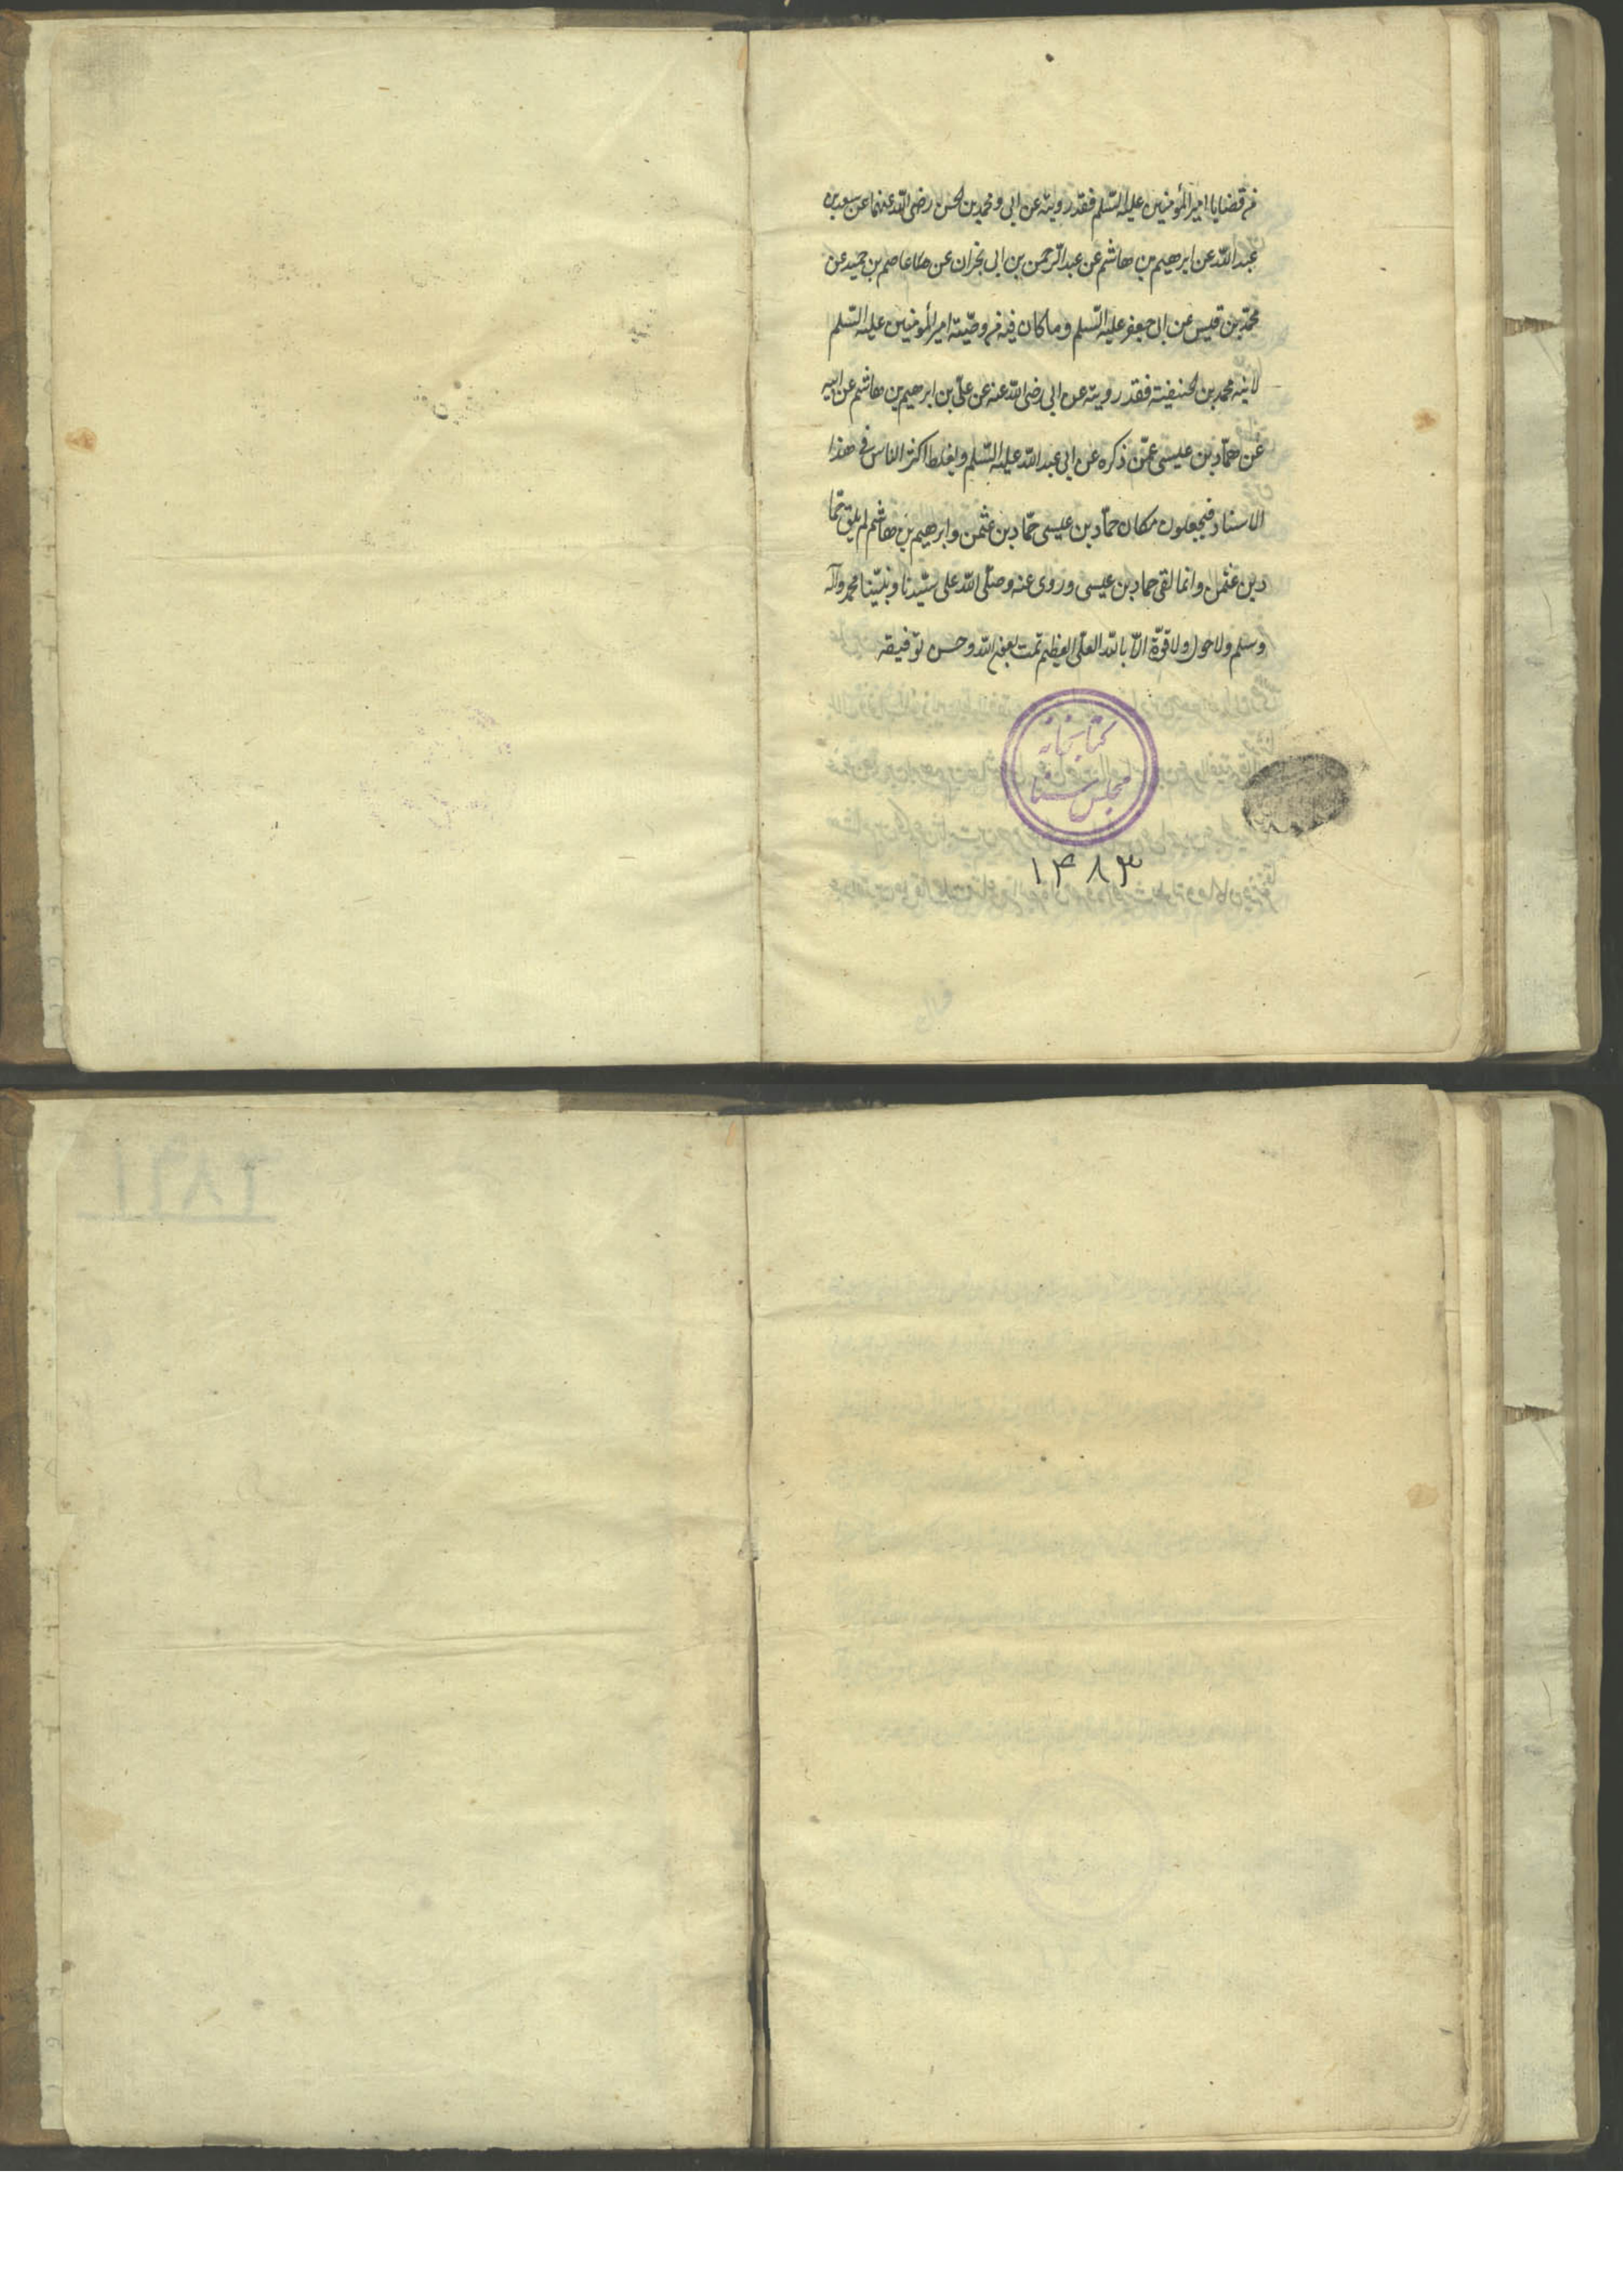 من قضايا امير المؤمنين عليه السّلم فقد رويته عن ابى و محمد بن الحسن رضى الله عنهما عن سعد بن
عبد الله عن ابرهيم بن هاشم عن عبد الرّحمن بن ابى نجران عن عاصم بن حميد عن
محمّد بن قيس عن ابى جعفر عليه السّلم و ما كان فيه من وصيّة امير المؤمنين عليه السّلم
لابنه محمد بن الحنفيته فقد رويته عن ابى رضى الله عنه عن علىّ بن ابرهيم بن هاشم عن ابيه
عن حمّاد بن عيسى عمّن ذكره عن ابى عبد الله عليه السّلم و يغلط اكثر الناس فى هذا
الاسناد فيجعلون مكان حمّاد بن عيسى حمّاد بن عثمن و ابرهيم بن هاشم لم يلق حمّا
د بن عثمن و انما لقى حماد بن عيسى و روى عنه و صلّى الله على سيّدنا و نبيّنا محمد و آله
و سلم و لا حول و لا قوّة الّا بالله العلى العظيم تمت بعون الله و حسن توفيقه
كتابخانه
مجلس سنا
۱۴۸۳